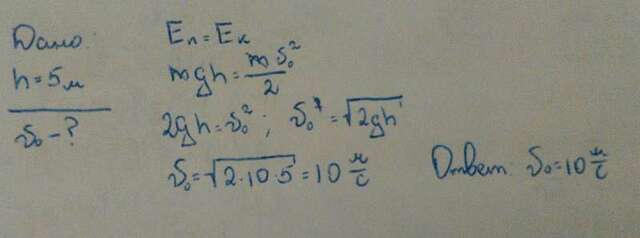 Дано:
h = 5 м
υ₀ - ?
Eп = Eк
mgh = mυ₀²/2
2gh = υ₀² ; υ₀ = √2gh
υ₀ = √2·10·5 = 10 м/с
Ответ: υ₀ = 10 м/с